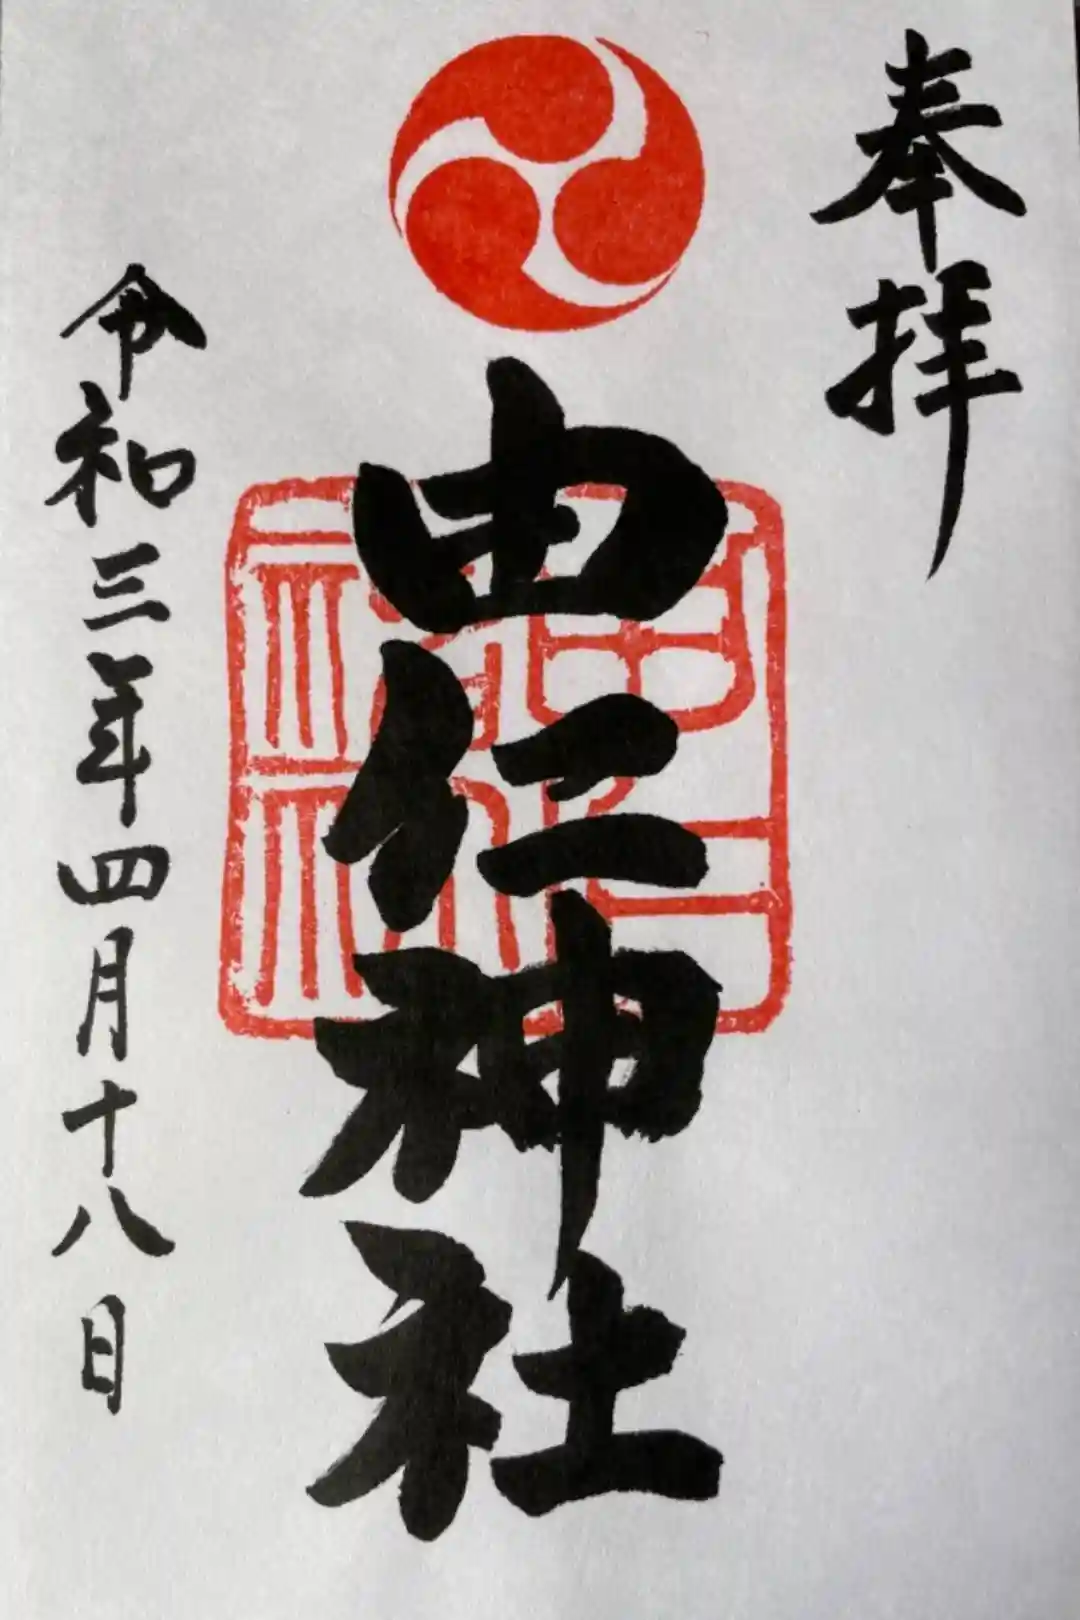 奉拝
由仁神社
令和三年四月十八日